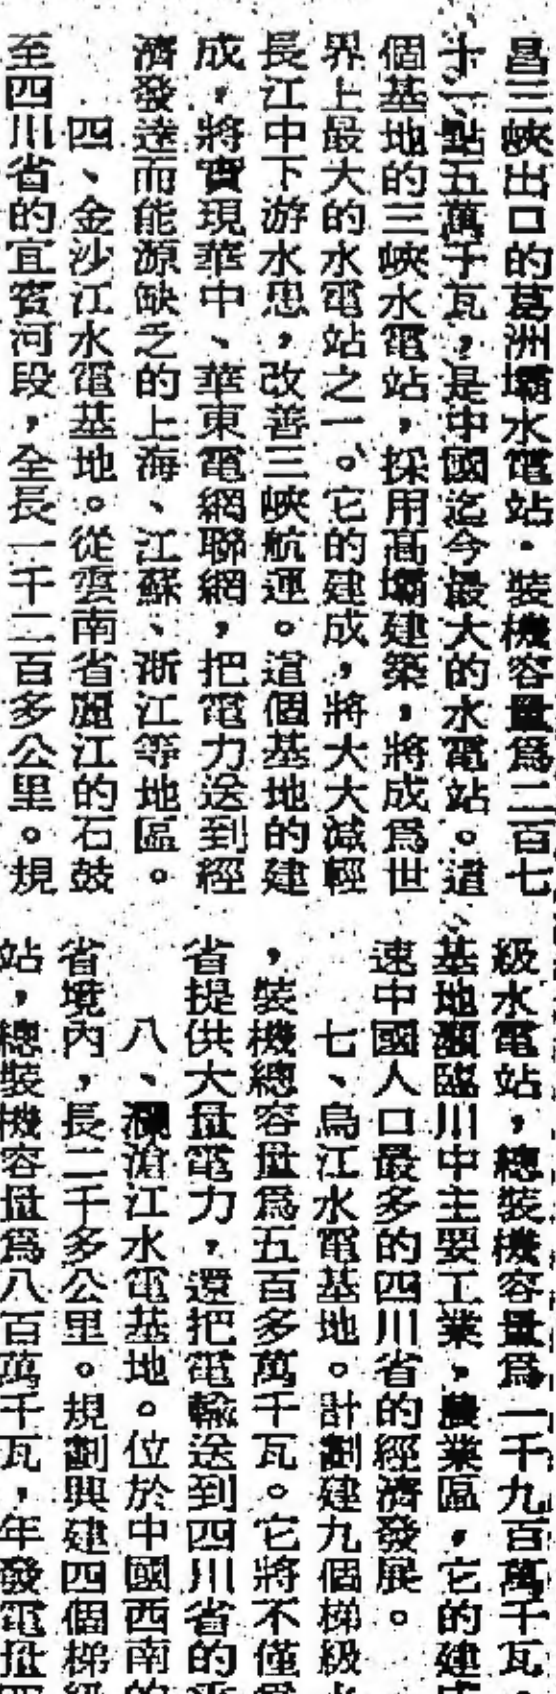 昌三峽出口的葛洲壩水電站。裝機容量爲二百七
十一點五萬千瓦，是中國迄今最大的水電站。這
個基地的三峽水電站，採用高壩建築，將成爲世
界上最大的水電站之一。它的建成，將大大減輕
長江中下游水患，改善三峽航運。這個基地的建
成，將實現華中、華東電網聯網，把電力送到經
濟發達而能源缺乏的上海、江蘇、浙江等地區。
四、金沙江水電基地。從雲南省麗江的石鼓
至四川省的宜賓河段，全長一千二百多公里。規
級水電站，總裝機容量爲一千九百萬千瓦。
基地瀕臨川中主要工業，農業區，它的建成
速中國人口最多的四川省的經濟發展。
七、烏江水電基地。計劃建九個梯級水
，裝機總容量爲五百多萬千瓦。它將不僅爲
省提供大量電力，還把電輸送到四川省的
八、瀾滄江水電基地。位於中國西南的
省境內，長二千多公里。規劃興建四個梯級
站，總裝機容量爲八百萬千瓦，年發電量四